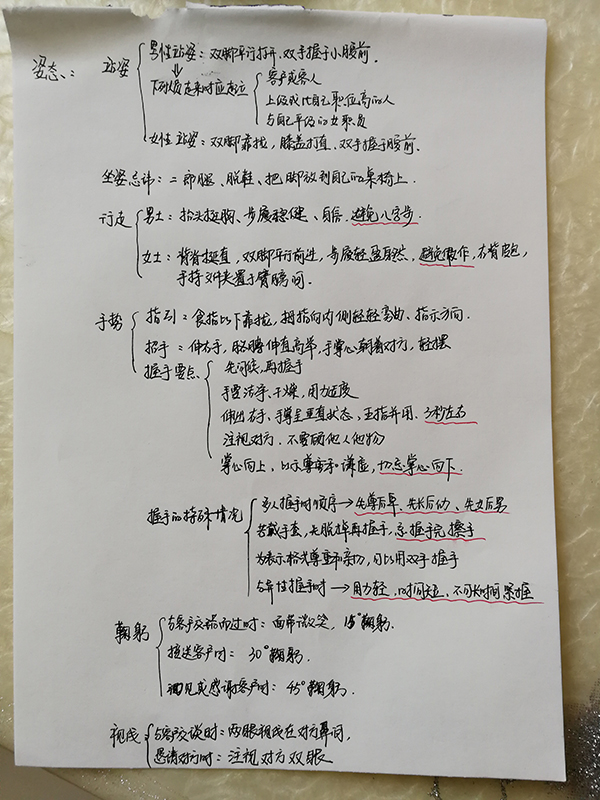 姿态：
站姿
男性站姿：双脚平行打开、双手握于小腹前.
下列人员走来时应起立
客户或客人
上级或比自己职位高的人
与自己平级的女职员
女性站姿：双脚靠拢，膝盖打直、双手握于腹前.
坐姿忌讳：二郎腿、脱鞋、把脚放到自己的桌椅上.
行走
男士：抬头挺胸、步履稳健、自信.避免八字步.
女士：背脊挺直，双脚平行前进，步履轻盈自然.避免做作，右肩背包，
手持文件夹置于臂膀间.
手势
指引：食指以下靠拢，拇指向内侧轻轻弯曲、指示方向.
招手：伸右手，胳膊伸直高举，手掌心朝着对方，轻摆
握手要点
先问候，再握手
手要洁净、干燥，用力适度
伸出右手、手掌呈垂直状态、五指并用.3秒左右
注视对方.不要顾他人他物
掌心向上，以示尊重和谦虚，切忌掌心向下.
握手的特殊情况
多人握手时顺序→先尊后卑、先长后幼、先女后男
若戴手套，先脱掉再握手，忌握手完擦手
为表示格外尊重和亲切，可以用双手握手
与异性握手时→用力轻、时间短、不可长时间紧握
鞠躬
与客户交错而过时：面带微笑、15°鞠躬.
接送客户时：30°鞠躬.
初见或感谢客户时：45°鞠躬.
视线
与客户交谈时：两眼视线在对方鼻间，
恳请对方时：注视对方双眼